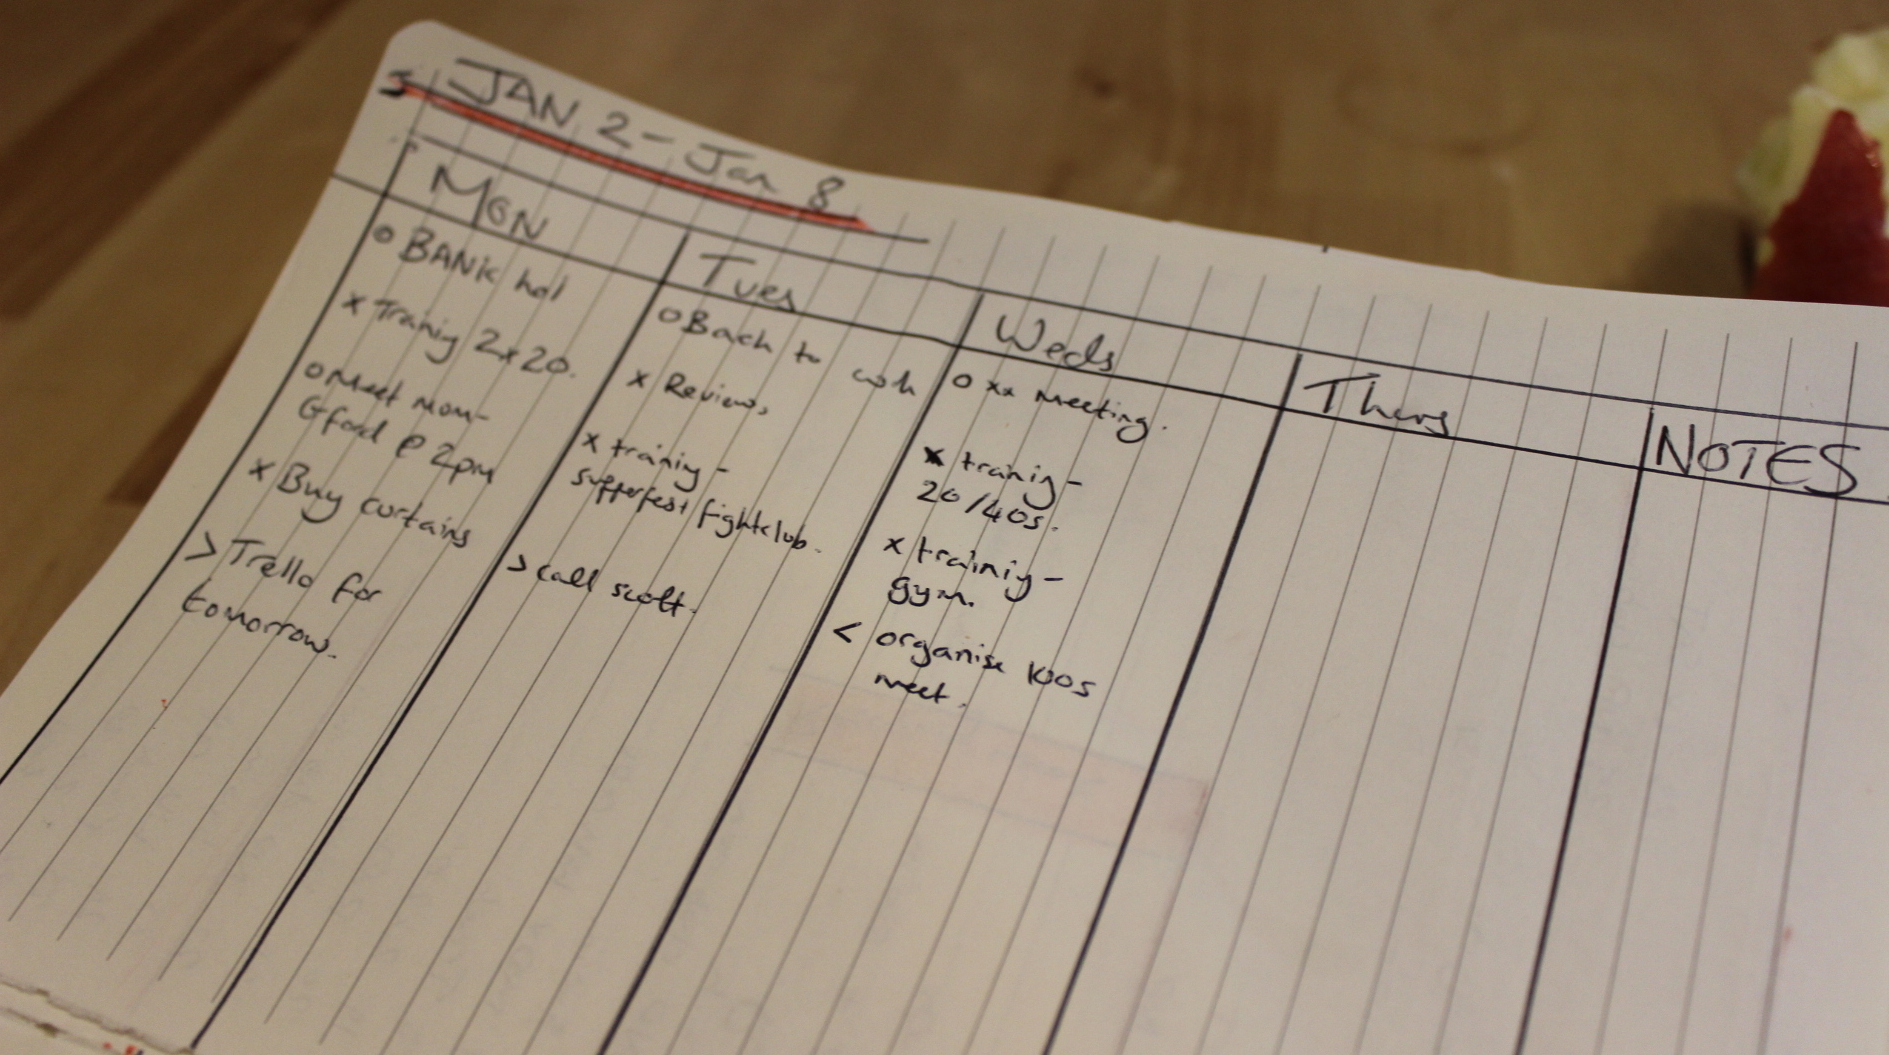 JAN 2 - Jan 8
MON
o BANK hol
x Training 2x20.
o Meet mom-
Gford @ 2pm
x Buy curtains
> Trello for
tomorrow.
Tues
o Back to work
x Reviews
x training -
supperfest fightclub.
> call scott.
Weds
o xx meeting.
x training -
20/40s.
x training -
gym.
< organise
meet.
Thurs
NOTES